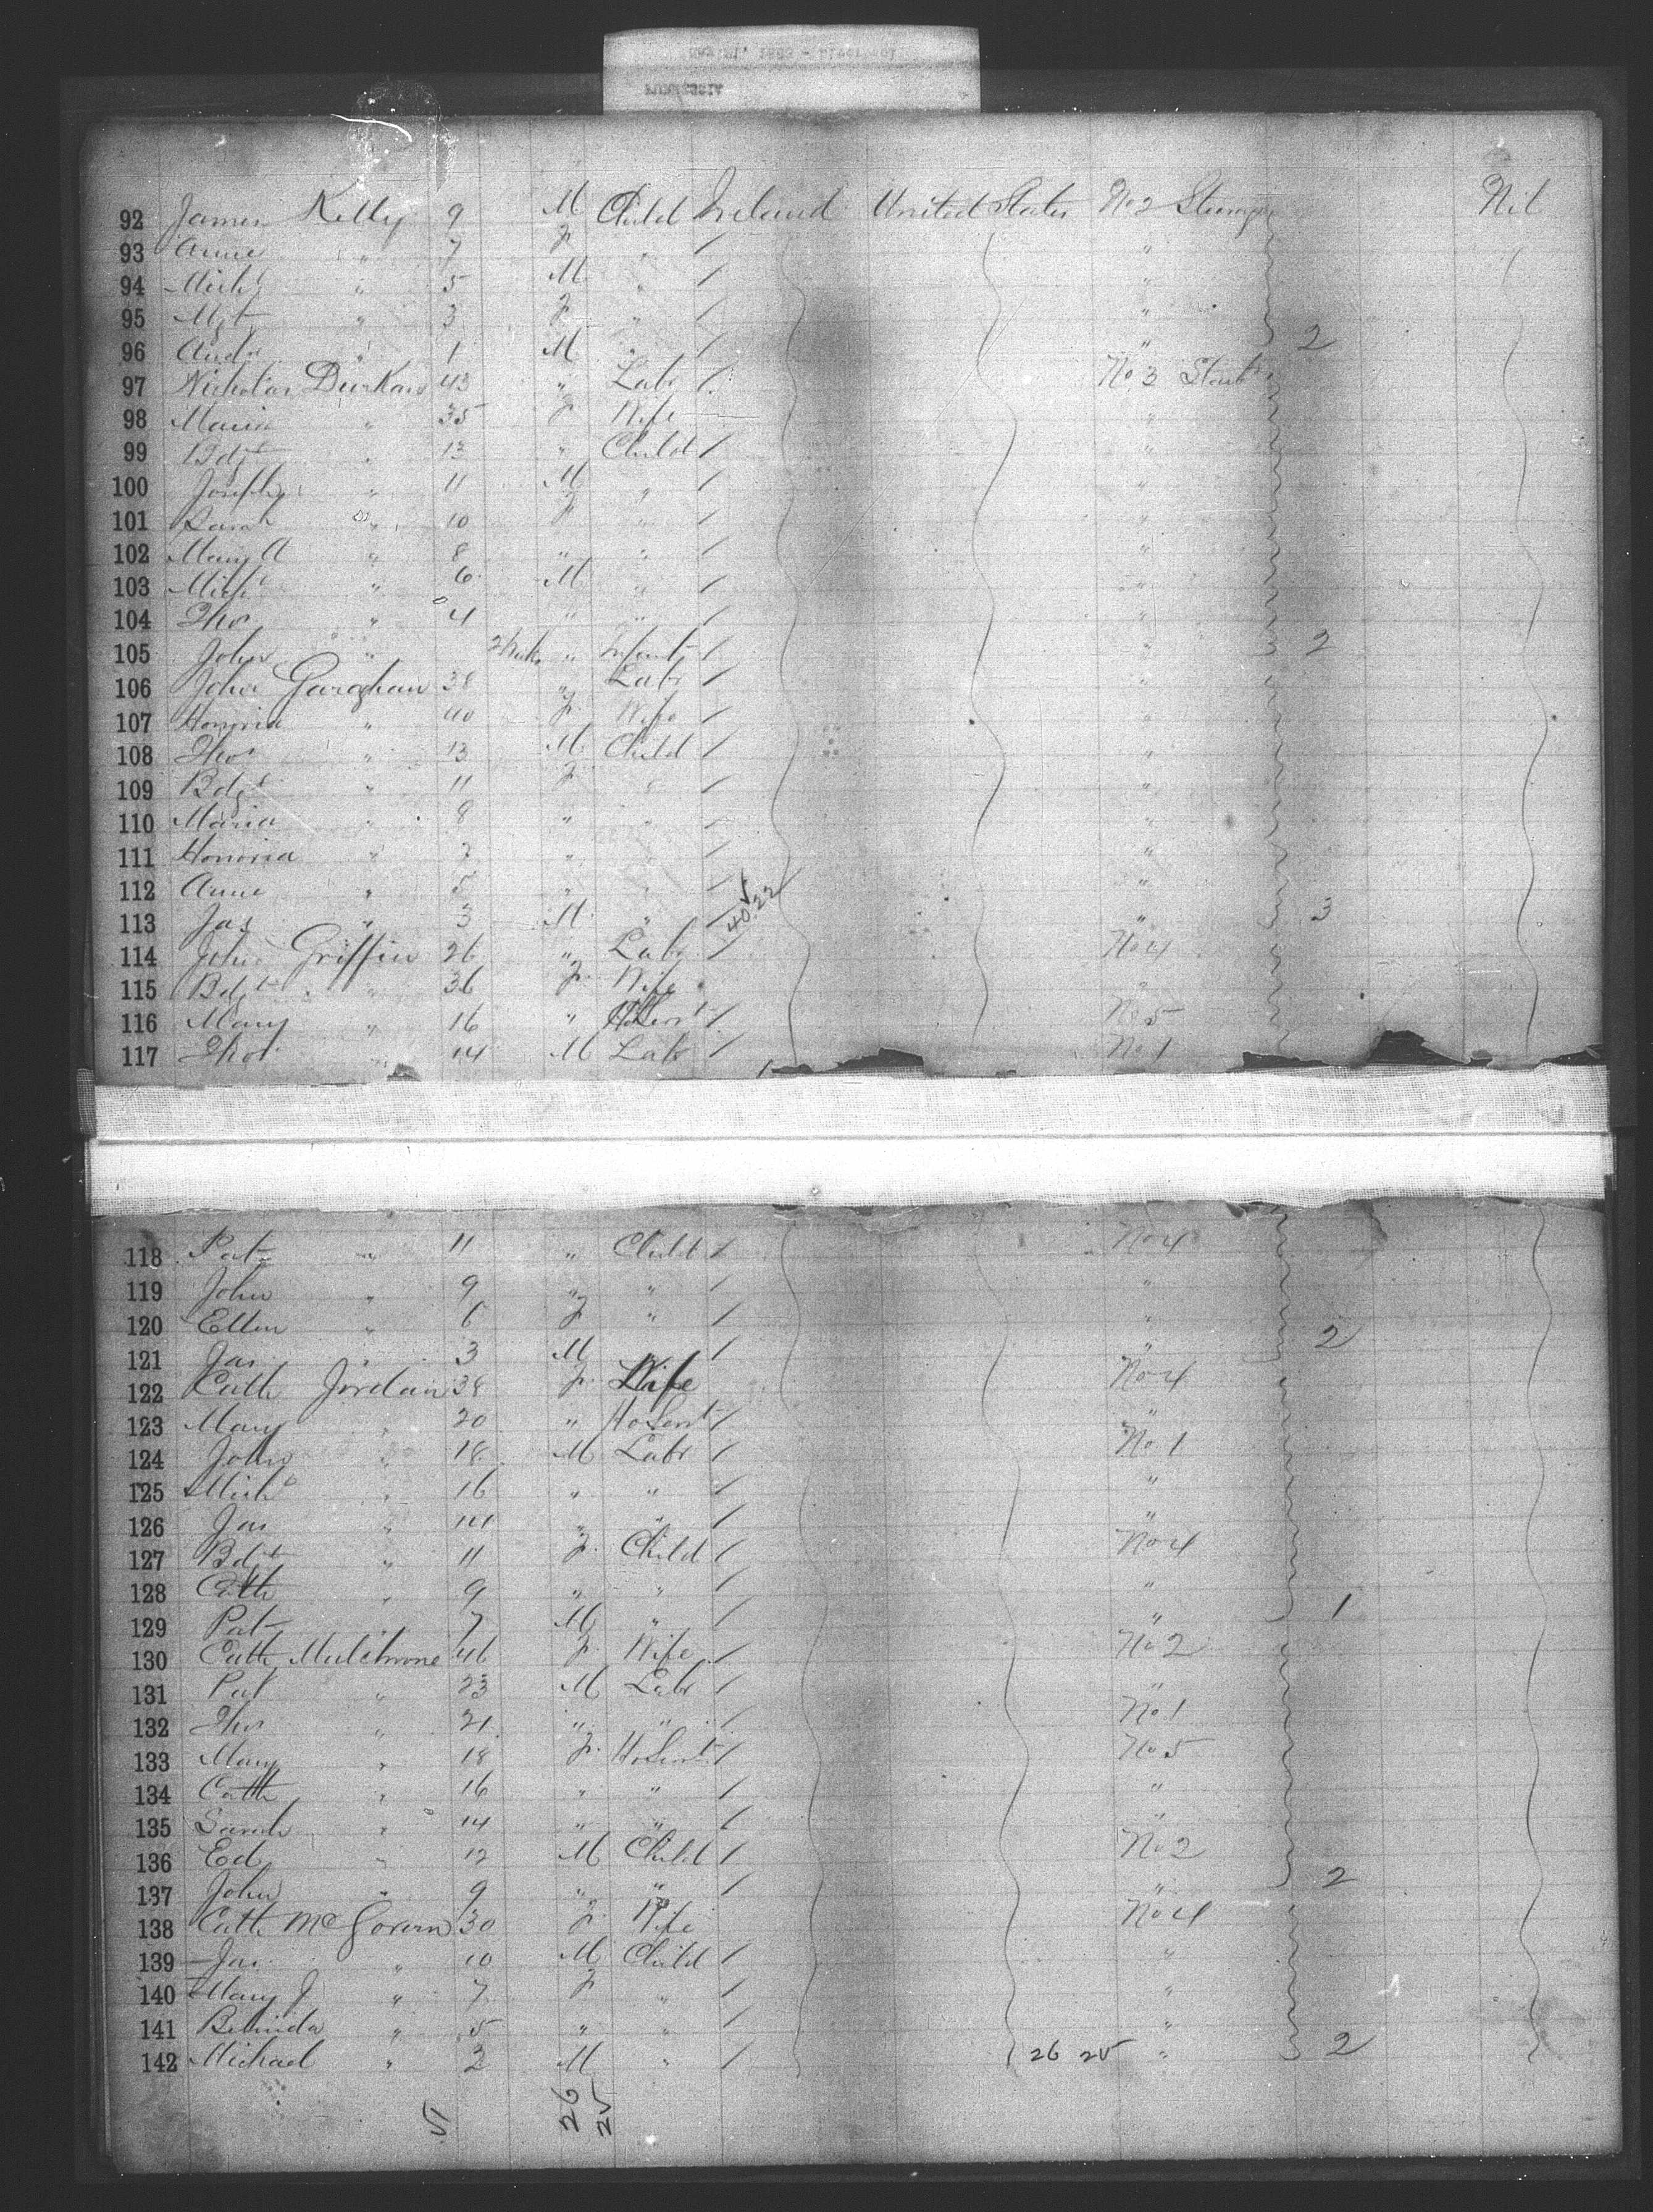 92 James Kelly 9 M Child Ireland United States No 2 Steerage Nil
93 Anne " 7 F " / "
94 Michl " 5 M " / "
95 Mgt " 3 F " / "
96 Andw " 1 M " / " 2
97 Nicholas Durkan 43 " Labr / No 3 Starbd
98 Maria " 35 F Wife "
99 Bdgt " 13 " Child / "
100 Joseph " 11 M " / "
101 Sarah " 10 F " / "
102 Mary A " 8 " " / "
103 Michl " 6 M " / "
104 Thos " 4 " " / "
105 John " " Infant / " 2
106 John Garghan 38 " Labr / "
107 Honoria " 40 F Wife / "
108 Thos " 13 M Child / "
109 Bdgt " 11 F " / "
110 Maria " 8 " " / "
111 Honoria " 7 " " / "
112 Anne " 5 " " / "
113 Jas " 3 M " / 40.22 " 3
114 John Griffin 26 " Labr / No 4
115 Bdgt " 36 F Wife "
116 Mary " 16 " HoServt / No 5
117 Thos " 14 M Labr / No 1
118 Pat " 11 " Child / No 4
119 John " 9 " " / "
120 Ellen " 6 F " / "
121 Jas " 3 M / " 2
122 Cath Jordan 38 F Wife No 4
123 Mary " 20 " HoServt / "
124 John " 18 M Labr / No 1
125 Michl " 16 " " / "
126 Jas " 14 " " / "
127 Bdgt " 11 F Child / No 4
128 Cath " 9 " " / "
129 Pat " 7 M " / " 1
130 Cath Mulchrone 46 F Wife / No 2
131 Pat " 23 M Labr / "
132 Thos " 21 " " / No 1
133 Mary " 18 F HoServt / No 5
134 Cath " 16 " " / "
135 Sarah " 14 " " / "
136 Ed " 12 M Child / No 2
137 John " 9 " " / " 2
138 Cath McGovern 30 F Wife No 4
139 Jas " 10 M Child / "
140 Mary J " 7 F " / "
141 Belinda " 5 " " / "
142 Michael " 2 M " / 26 25 " 2
26
25